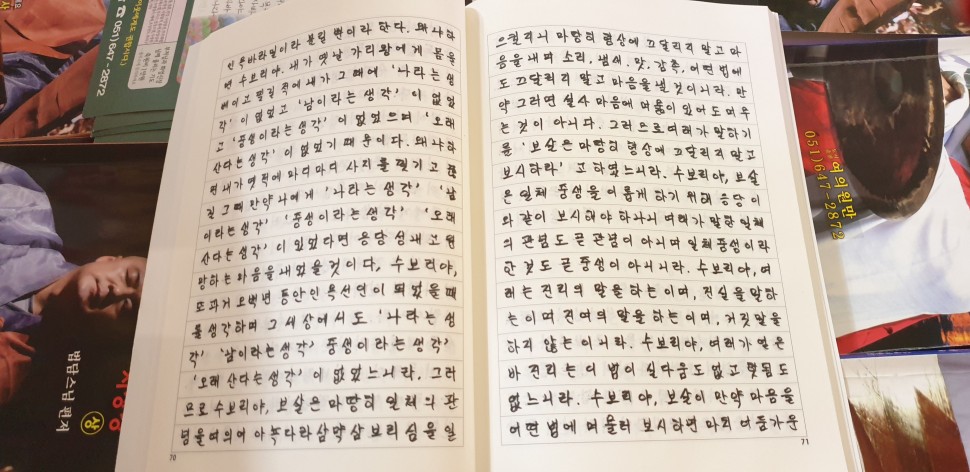 인욕바라밀이라 불릴 뿐이라 한다. 왜냐하
면 수보리야. 내가 옛날 가리왕에게 몸을
베이고 찢길 적에 내가 그 때에 '나라는 생
각' 이 없었고 '남이라는 생각' 이 없었
고 '중생이라는 생각' 이 없었으며 '오래
산다는 생각' 이 없었기 때문이다. 왜냐하
면 내가 옛적에 마디마디 사지를 찢기고 끊
길 그때 만약 나에게 '나라는 생각' '남
이라는 생각' '중생이라는 생각' '오래
산다는 생각' 이 있었다면 응당 성내고 원
망하는 마음을 내었을 것이다, 수보리야,
또 과거 오백년 동안 인욕선인이 되었을 때
를 생각하며 그 세상에서도 '나라는 생
각' '남이라는 생각' 중생이라는 생각'
'오래 산다는 생각' 이 없었느니라. 그러
므로 수보리야, 보살은 마땅히 일체의 관
념을 여의어 아뇩다라삼먁삼보리심을 일
70
으킬지니 마땅히 형상에 끄달리지 말고 마
음을 내며 소리, 냄새, 맛, 감촉, 어떤 법에
도 끄달리지 말고 마음을 낼 것이니라. 만
약 그러면 설사 마음에 머묾이 있어도 머무
는 것이 아니다. 그러므로 여래가 말하기
를 '보살은 마땅히 형상에 끄달리지 않고
보시하라' 고 하였느니라. 수보리야, 보살
은 일체 중생을 이롭게 하기 위해 응당 이
와 같이 보시해야 하나니 여래가 말한 일체
의 관념도 곧 관념이 아니며 일체 중생이라
한 것도 곧 중생이 아니니라. 수보리야, 여
래는 진리의 말을 하는 이며, 진실을 말하
는 이며 진여의 말을 하는 이며, 거짓말을
하지 않는 이니라. 수보리야, 여래가 얻은
바 진리는 이 법이 실다움도 없고 헛됨도
없느니라. 수보리야, 보살이 만약 마음을
어떤 법에 머물러 보시하면 마치 어둠가운
71
051)647-2872
생
법담스님 편저
여의원만
051)647-2872